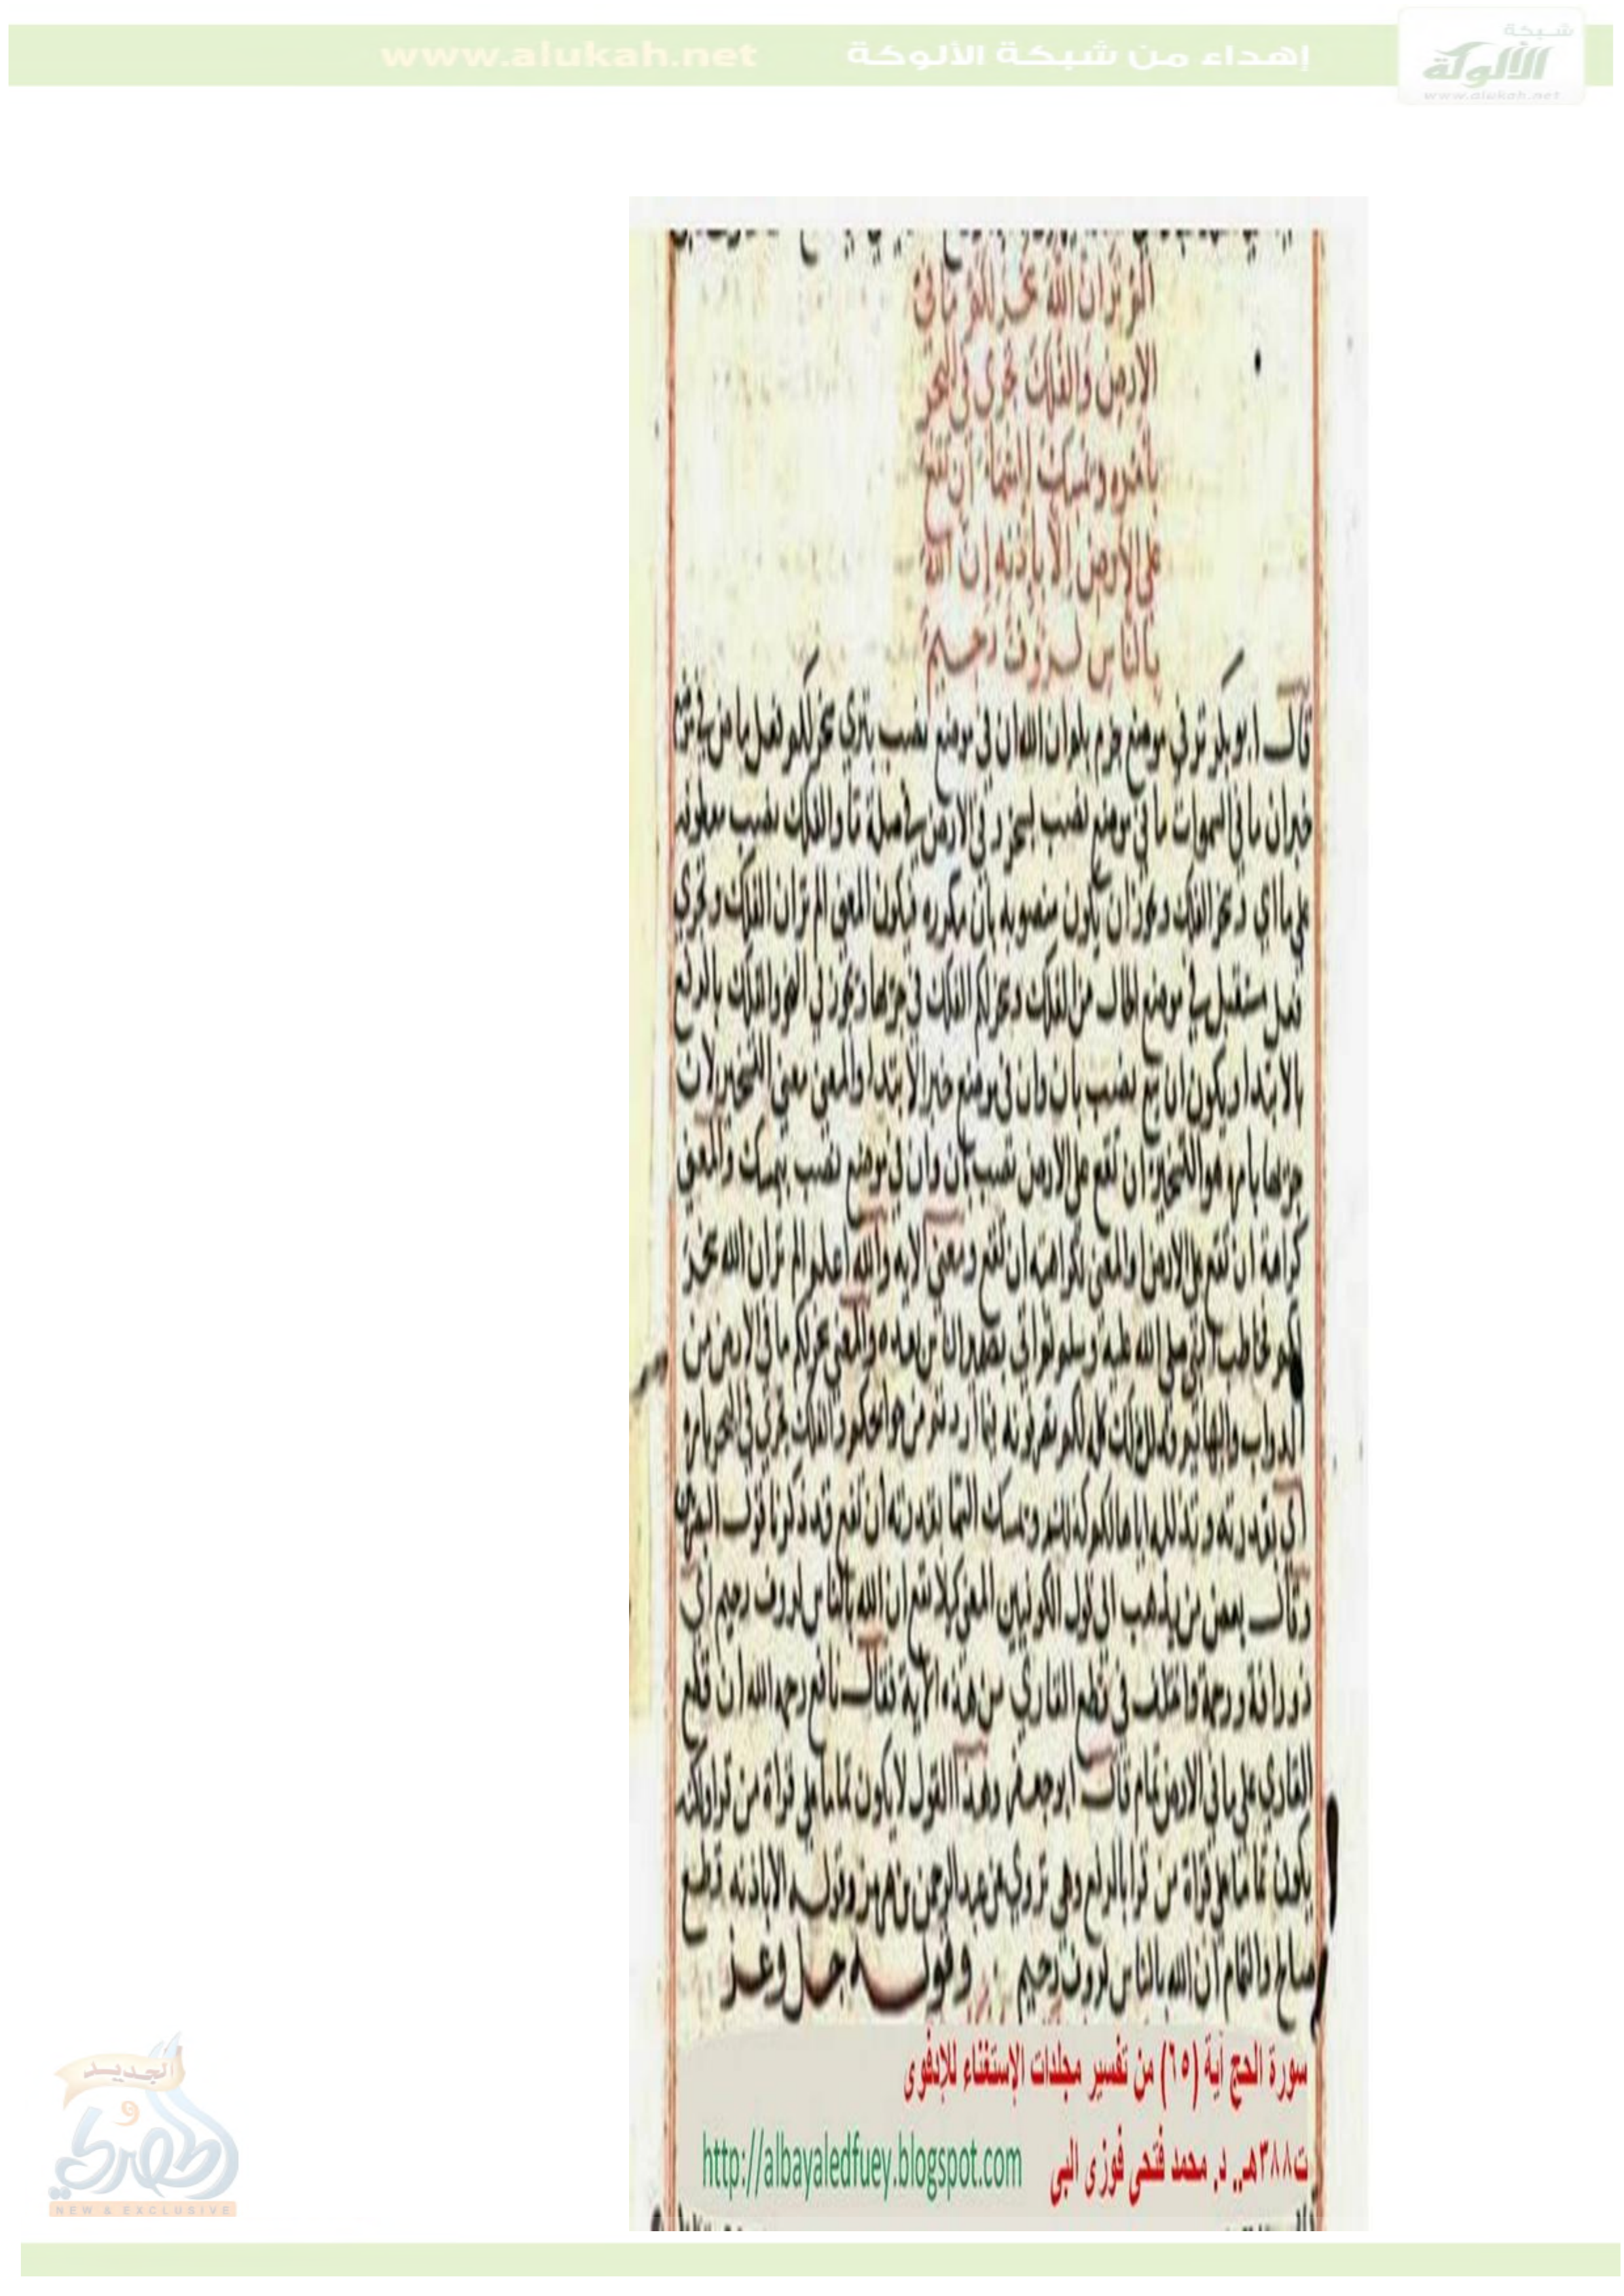 شبكة
الألوكة
www.alukah.net
إهداء من شبكة الألوكة www.alukah.net
الم تر ان الله سخر لكم ما في
الارض والفلك تجري في البحر
بامره ويمسك السماء ان تقع
على الارض الا باذنه ان الله
بالناس لرؤف رحيم
قال ابو بكر تر في موضع جزم بلم وان الله ان في موضع نصب بترى سخر لكم فعل ماض في موضع
خبر ان ما في السموات ما في موضع نصب لسخر و في الارض في صلة ما والفلك نصب معطوفه
على ما اي وسخر الفلك ويجوز ان يكون منصوبه بان مكرره فيكون المعنى الم تر ان الفلك وتجري
فعل مستقبل في موضع الحال من الفلك وسخر لكم الفلك في جريها ويجوز في النحو والفلك بالرفع
بالابتدا ويكون ان تقع نصب بان وان في موضع خبر الابتدا والمعنى معنى التسخير لان
جريها بامره هو التسخير ان تقع على الارض نصب بان وان في موضع نصب بيمسك والمعنى
كراهة ان تقع على الارض والمعنى لكراهية ان تقع ومعنى الايه والله اعلم الم تر ان الله سخر
لكم خاطب النبي صلى الله عليه وسلم والمعنى سخر لكم ما في الارض من
الدواب والبهائم لكم والفلك تجري في البحر بامره
اي بقدرته وتذليله اياها لكم كذلك ويمسك السما بقدرته ان تقع وقد ذكرنا قول البصريين
وقال بعض من يذهب الى قول الكوفيين المعنى لئلا تقع ان الله بالناس لرووف رحيم اي
ذو رافة ورحمة واختلف في قطع القاري من هذه الآية فقال نافع رحمه الله ان قطع
القاري على ما في الارض تمام قال ابو جعفر وهذا القول لا يكون تماما على قراة من قرا ولكنه
يكون تماما على قراة من قرا بالرفع وهي تروى عن عبد الرحمن بن هرمز وقوله الا باذنه قطع
صالح والتمام ان الله بالناس لرووف رحيم وقوله جل وعز
سورة الحج آية (٦٥) من تفسير مجلدات الإستغناء للإدفوى
ت٣٨٨هـ. د. محمد فتحى فوزى البى http://albayaledfuey.blogspot.com
الجديد
و
الحصري
NEW & EXCLUSIVE